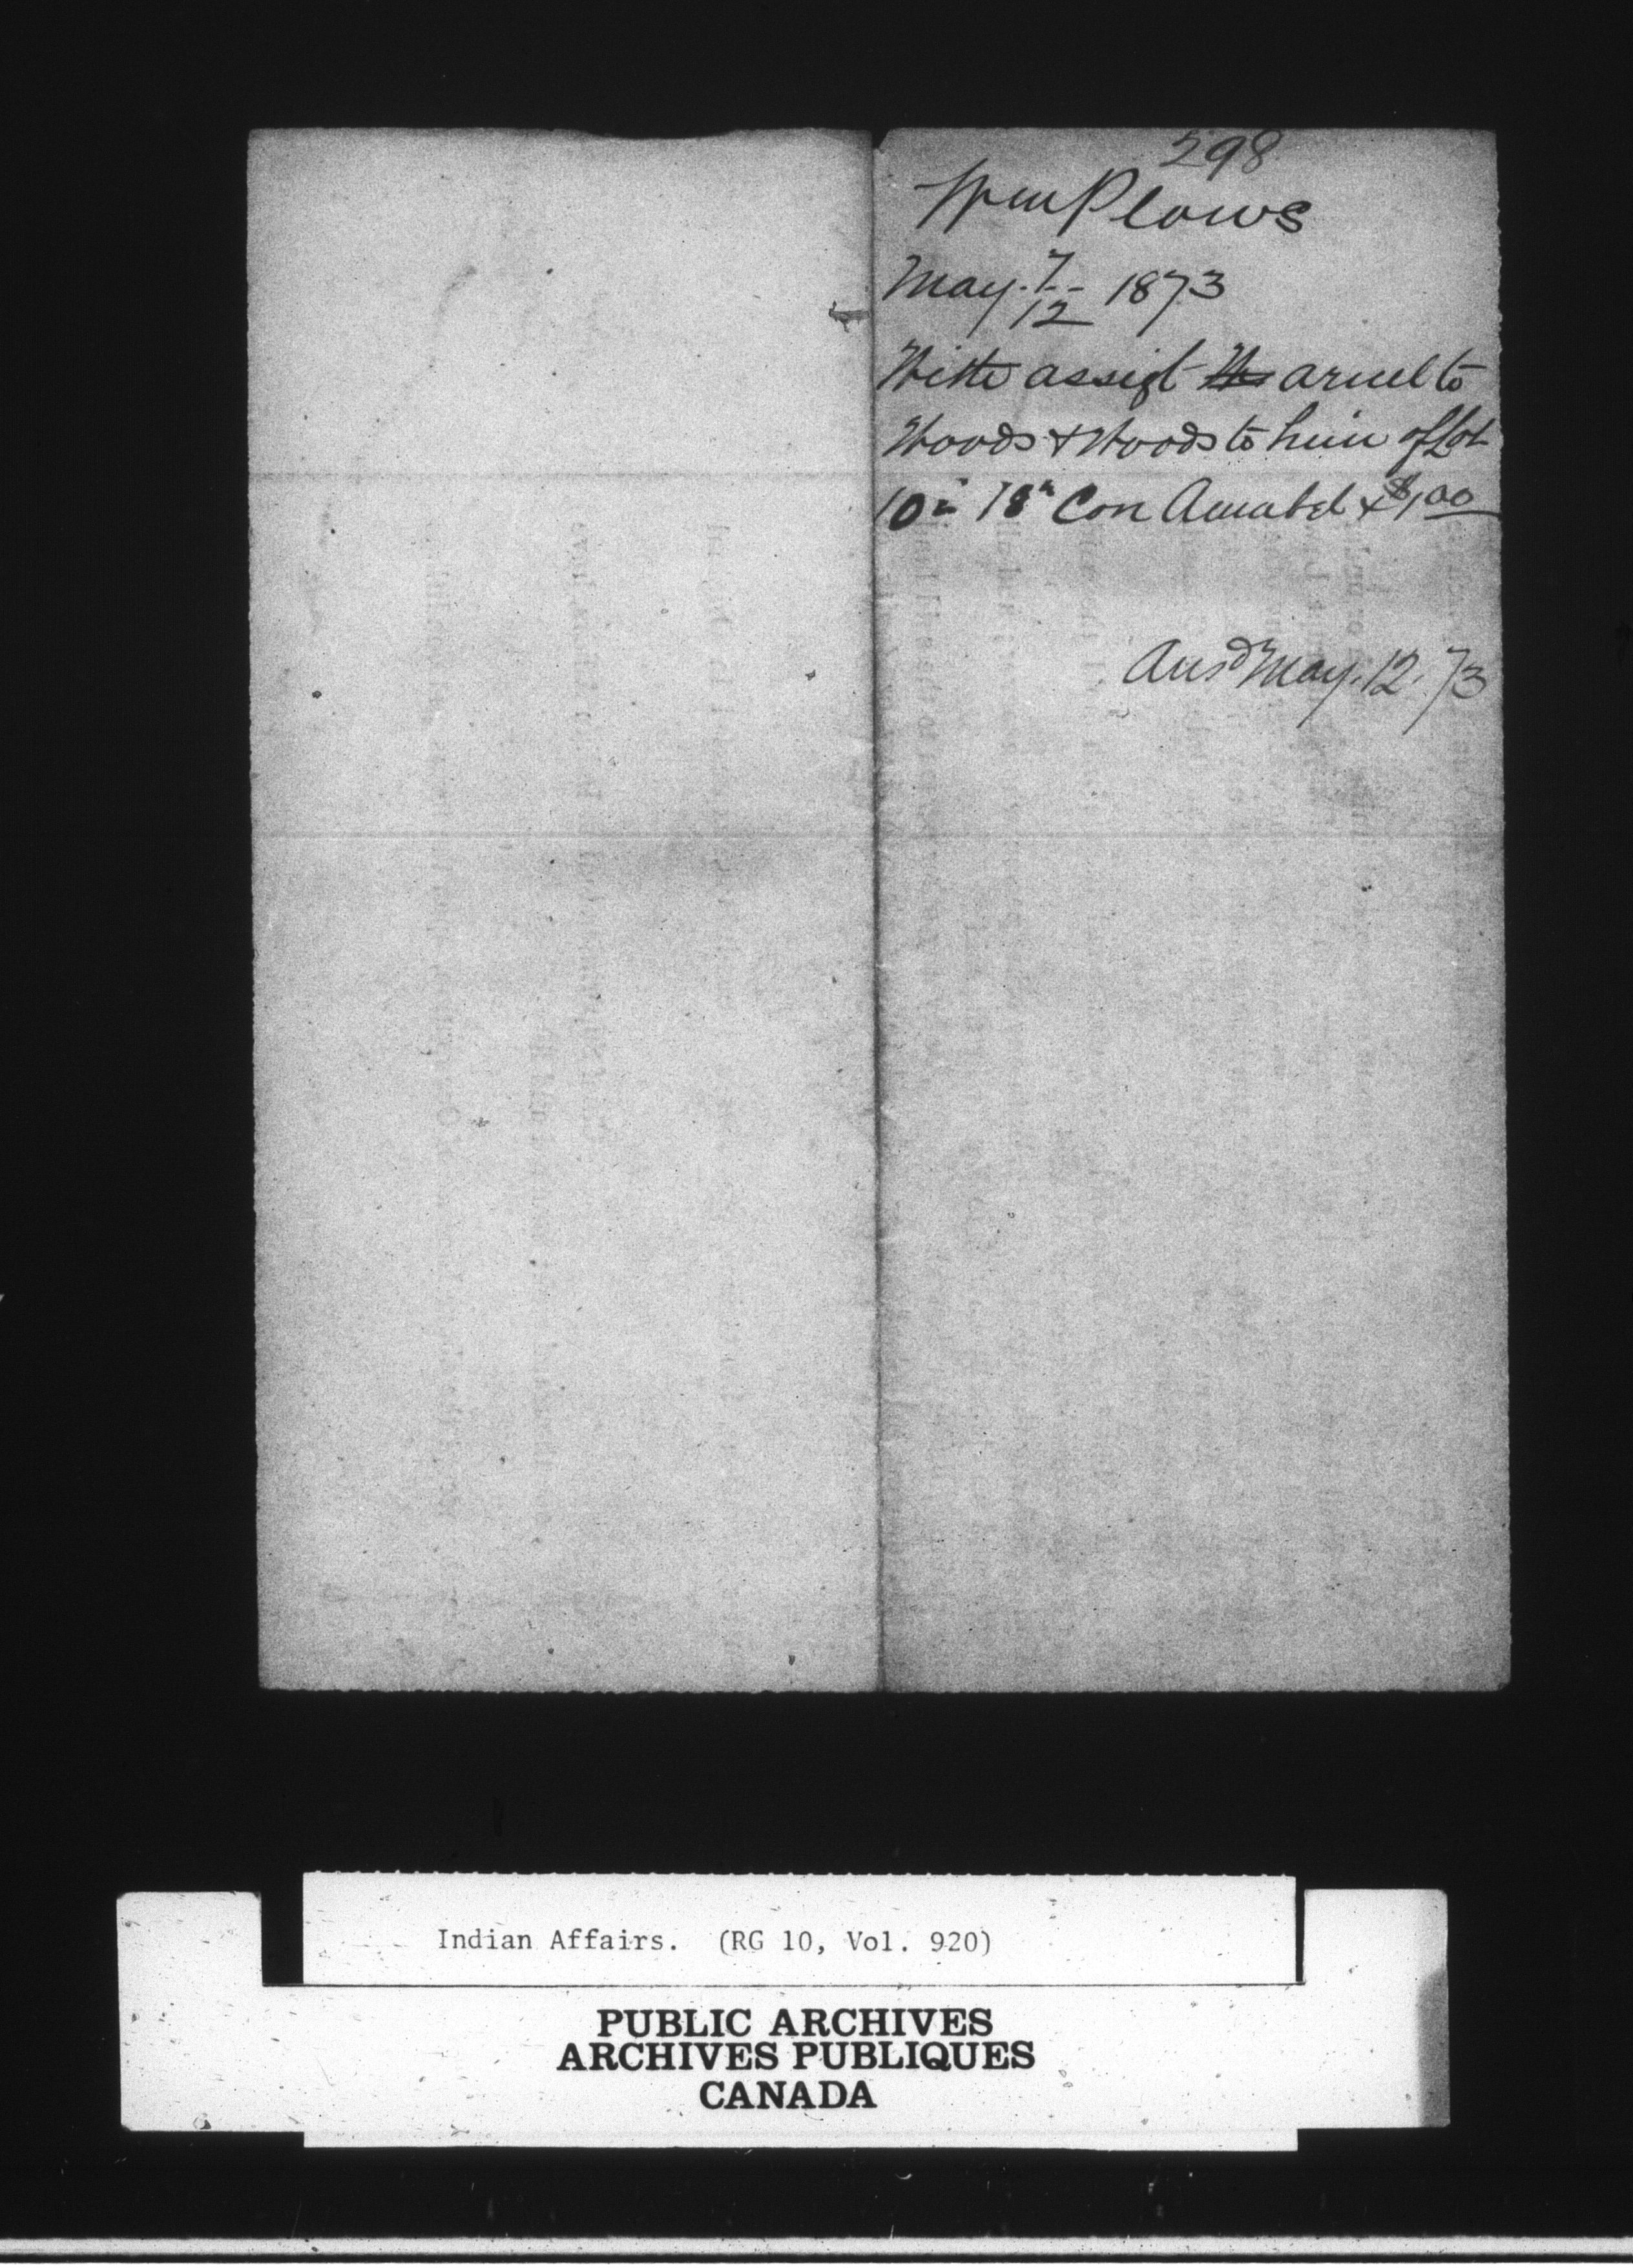 298
Wm Plows
May. 7/12 1873
With assigt to
Woods & Woods to him of Lot
10 in 18th Con Amabel & $1.00
Ansd May. 12. 73
Indian Affairs. (RG 10, Vol. 920)
PUBLIC ARCHIVES
ARCHIVES PUBLIQUES
CANADA